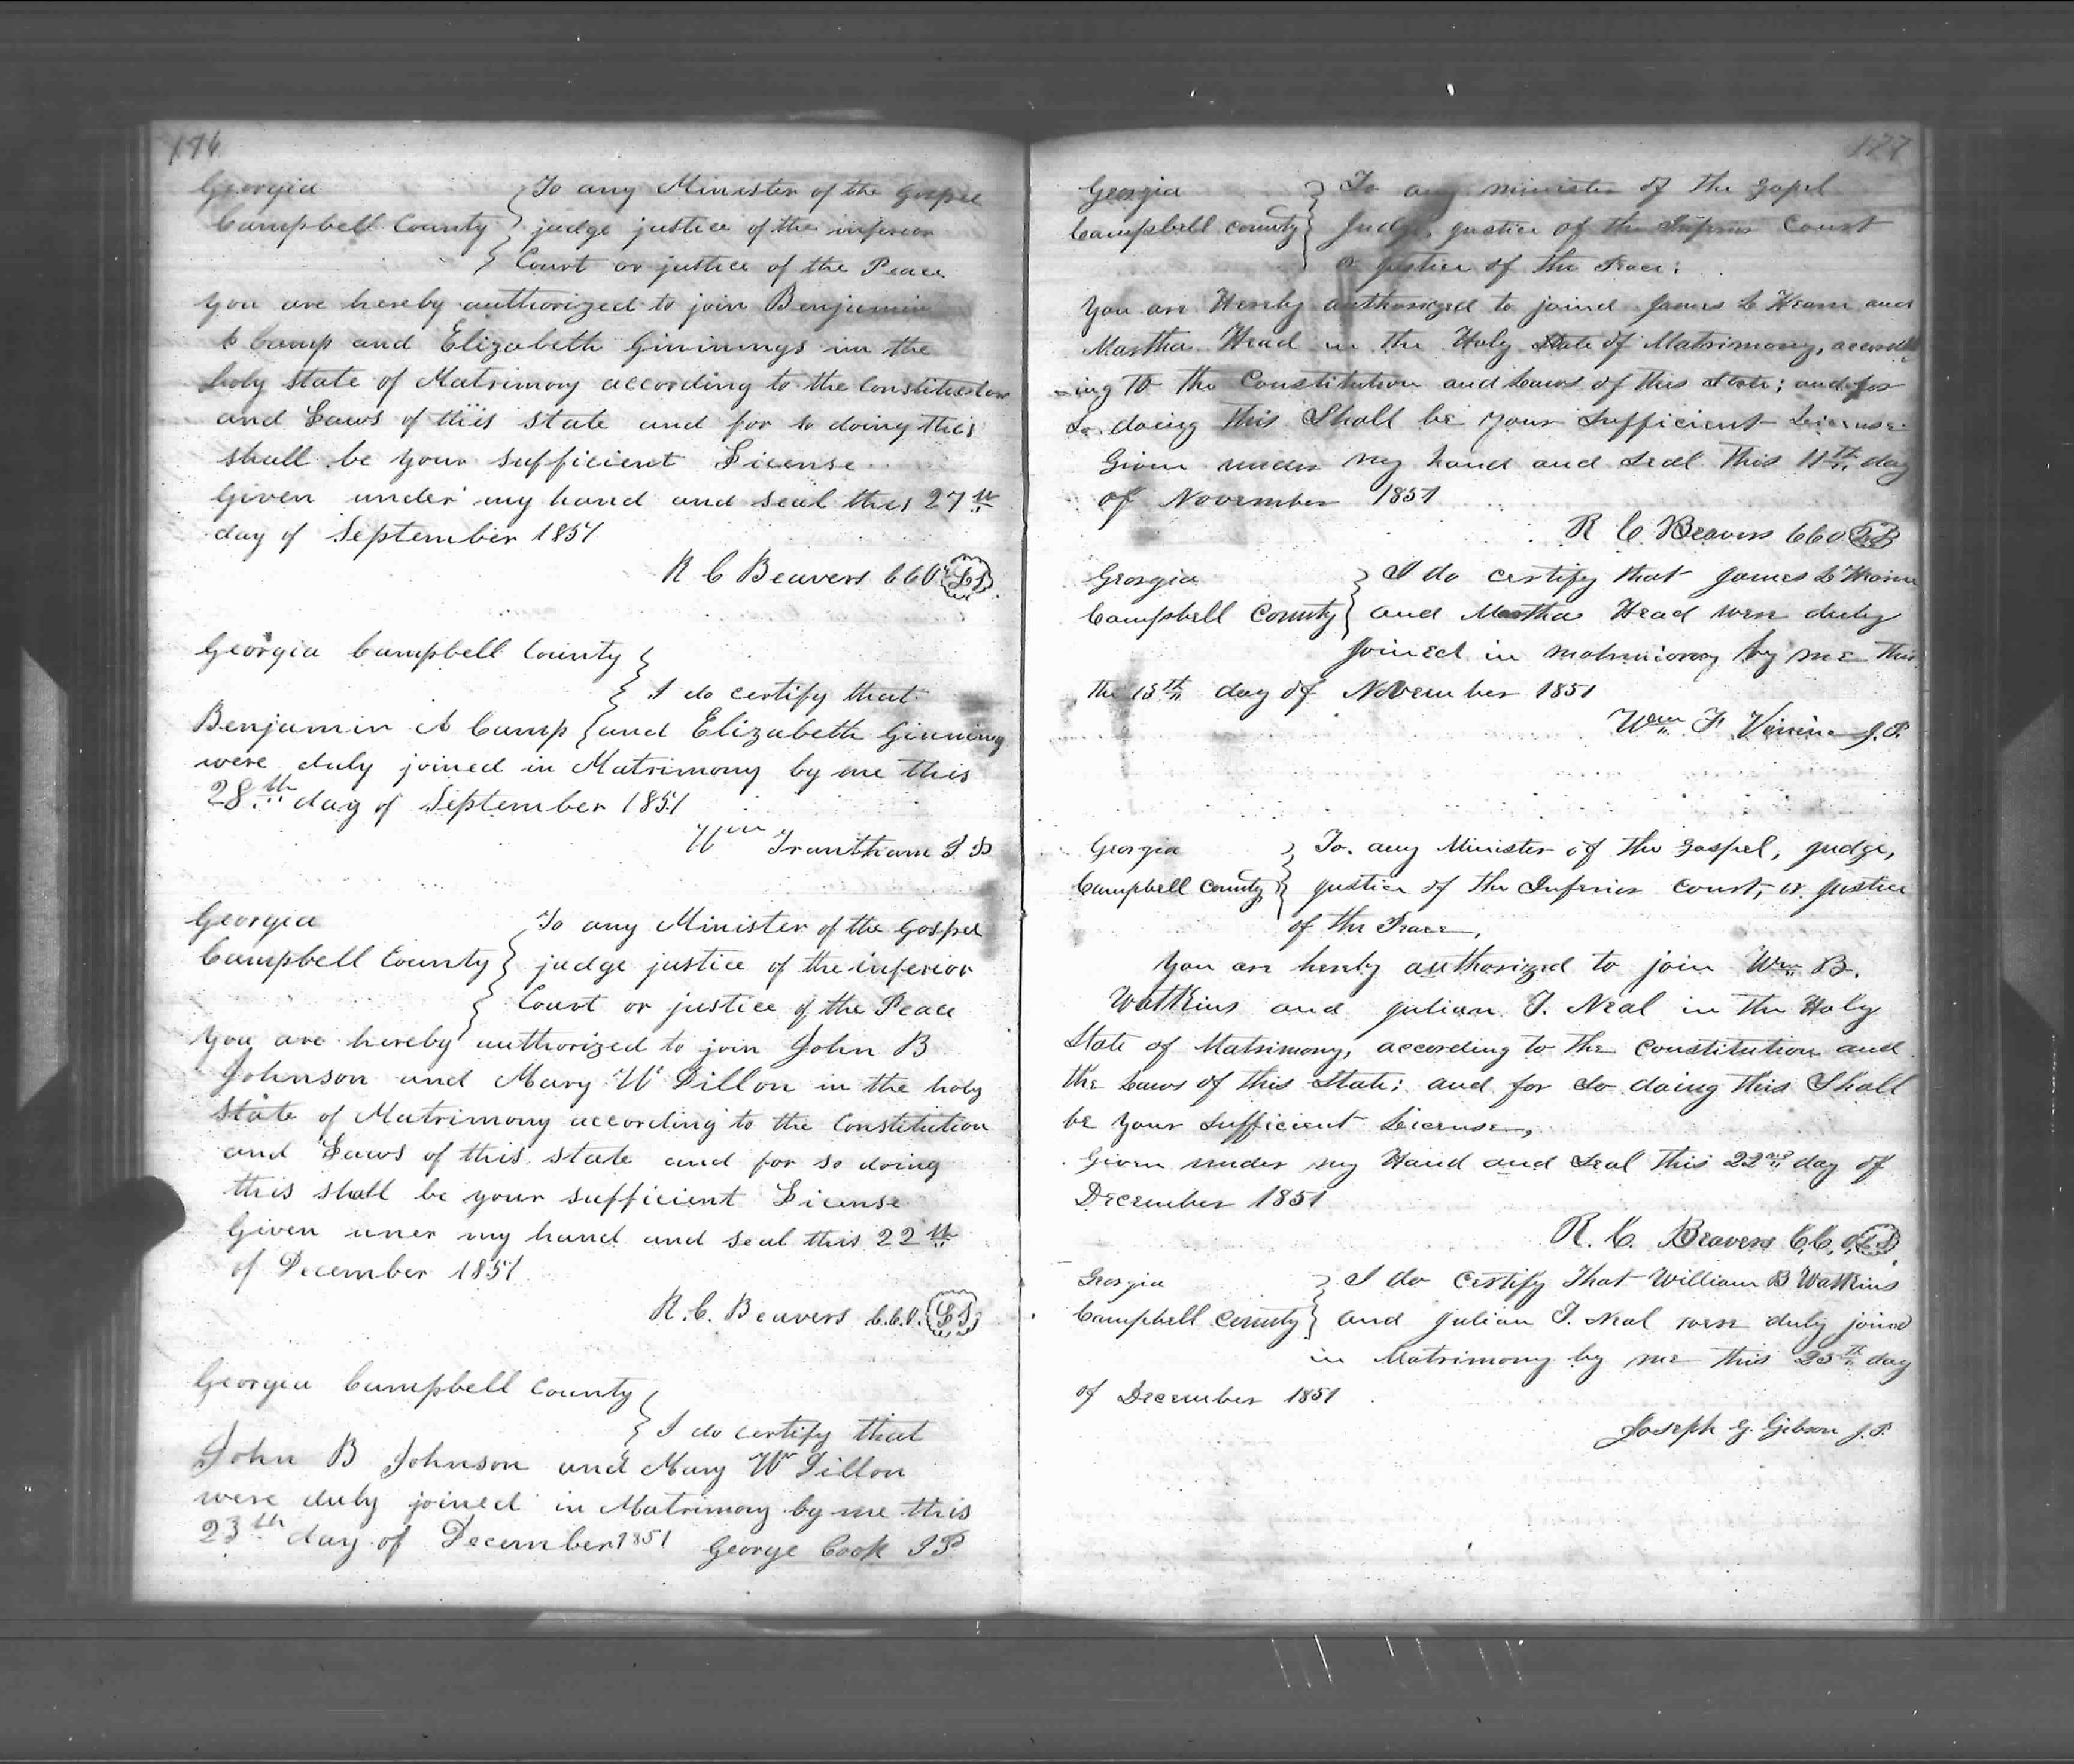 176
Georgia
Campbell County
To any Minister of the Gospel
judge justice of the inferior
Court or justice of the Peace
you are hereby authorized to join Benjamin
A Camp and Elizabeth Ginnings in the
holy state of Matrimony according to the Constitution
and Laws of this state and for so doing this
shall be your sufficient License
Given under my hand and seal this 27th
day of September 1851
R C Beavers CCO LS
Georgia Campbell County
I do certify that
Benjamin A Camp and Elizabeth Ginning
were duly joined in Matrimony by me this
28th day of September 1851
Wm Trantham J P
Georgia
Campbell County
To any Minister of the Gospel
judge justice of the inferior
Court or justice of the Peace
you are hereby authorized to join John B
Johnson and Mary W Dillon in the holy
state of Matrimony according to the Constitution
and Laws of this state and for so doing
this shall be your sufficient License
Given uner my hand and seal this 22th
of December 1851
R. C. Beavers C.C.O. LS
Georgia Campbell County
I do certify that
John B Johnson and Mary W Dillon
were duly joined in Matrimony by me this
23th day of December 1851 George Cook JP
177
Georgia
Campbell County
To any minister of the Gospel
Judge, justice of the Inferior Court
or justice of the Peace;
You are Hereby authorized to joind James L Hearn and
Martha Head in the Holy State of Matrimony, accord
-ing to the Constitution and Laws of this State; and for
so doing this Shall be your Sufficient License
Given under my hand and Seal this 11th day
of November 1851
R C Beavers CCO LS
Georgia
Campbell County
I do certify that James L Hearn
and Martha Head were duly
joined in matrimony by me this
the 13th day of November 1851
Wm F J.P.
Georgia
Campbell County
To any Minister of the Gospel, Judge,
justice of the Inferior Court, or justice
of the Peace,
You are hereby authorized to join Wm B.
Watkins and Julian T. Neal in the Holy
State of Matrimony, according to the Constitution and
the Laws of this State; and for so doing this Shall
be your Sufficient License,
Given under my Hand and Seal this 22nd day of
December 1851
R. C. Beavers C.C.O. LS
Georgia
Campbell County
I do Certify that William B Watkins
and Julian T. Neal were duly joined
in Matrimony by me this 25th day
of December 1851
Joseph G. Gibson J.P.